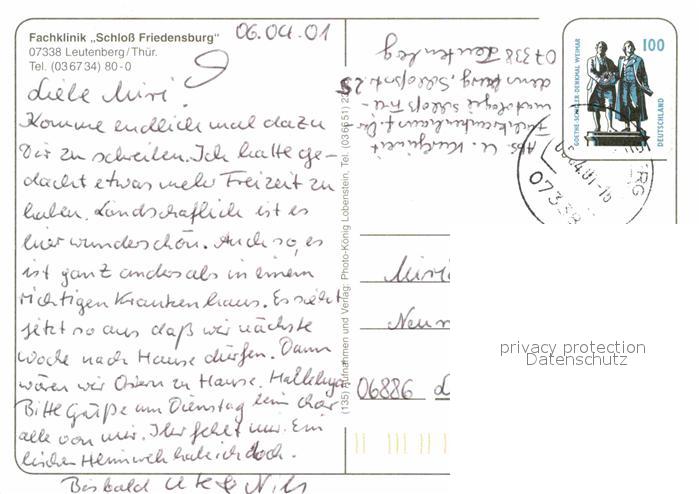 Fachklinik „Schloß Friedensburg"
07338 Leutenberg/Thür.
Tel. (03 67 34) 80-0
06.04.01
Liebe Miri!
Komme endlich mal dazu
Dir zu schreiben. Ich hatte ge-
dacht etwas mehr Freizeit zu
haben. Landschaftlich ist es
hier wunderschön. Auch so, es
ist ganz anders als in einem
richtigen Krankenhaus. Es sieht
jetzt so aus daß wir nächste
Woche nach Hause dürfen. Dann
wären wir Ostern zu Hause. Halleluja
Bitte Grüße am Dienstag beim Chor
alle von mir. Ihr fehlt mir. Ein
bischen Heimweh habe ich doch.
Bis bald Ute & Nils
(135) Aufnahmen und Verlag: Photo-König Lobenstein, Tel. (03 66 51) 2
Abs. U.
Fachkrankenhaus f. Der-
matologie Schloß Frie-
densburg, Schloßstr. 25
07338 Leutenberg
GOETHE-SCHILLER-DENKMAL WEIMAR
100
DEUTSCHLAND
07338
Miri
Neum
06886
privacy protection
Datenschutz